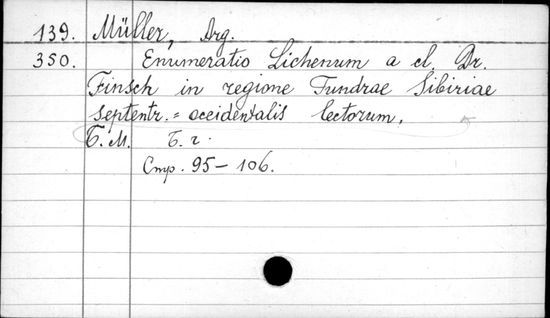 139. Müller, Arg.
350. Enumeratio Lichenum a cl. Dr.
Finsch in regione Tundrae Sibiriae
septentr. = occidentalis lectorum.
Т. М. Т. 2.
Стр. 95 – 106.